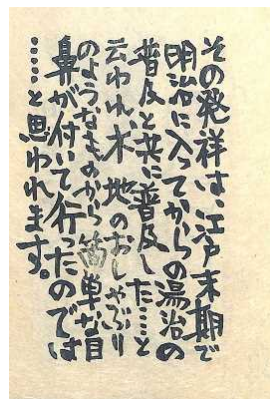 その発祥は、江戸末期で
明治に入ってからの湯治の
普及と共に普及した……と
云われ、木地のおしゃぶり
のようなものから簡単な目
鼻が付いて行ったのでは
……と思われます。